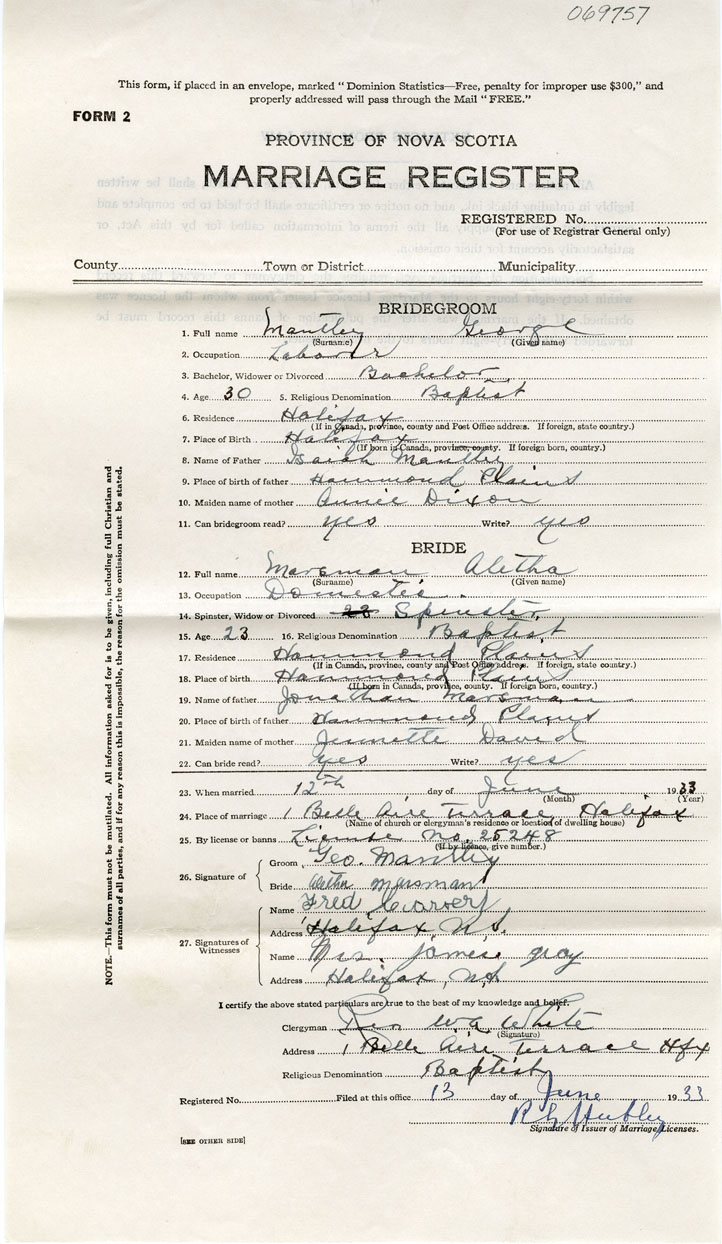 069757
This form, if placed in an envelope, marked "Dominion Statistics—Free, penalty for improper use $300," and
properly addressed will pass through the Mail "FREE."
FORM 2
PROVINCE OF NOVA SCOTIA
MARRIAGE REGISTER
REGISTERED No.
(For use of Registrar General only)
County Town or District Municipality
BRIDEGROOM
1. Full name Mantley George
(Surname) (Given name)
2. Occupation Laborer
3. Bachelor, Widower or Divorced Bachelor
4. Age 30 5. Religious Denomination Baptist
6. Residence Halifax
(If in Canada, province, county and Post Office address. If foreign, state country.)
7. Place of Birth Halifax
(If born in Canada, province, county. If foreign born, country.)
8. Name of Father Isaiah Mantley
9. Place of birth of father Hammond Plains
10. Maiden name of mother Annie Dixon
11. Can bridegroom read? yes Write? yes
BRIDE
12. Full name Marsman Aletha
(Surname) (Given name)
13. Occupation Domestic
14. Spinster, Widow or Divorced 23 Spinster
15. Age 23 16. Religious Denomination Baptist
17. Residence Hammond Plains
(If in Canada, province, county and Post Office address. If foreign, state country.)
18. Place of birth Hammond Plains
(If born in Canada, province, county. If foreign born, country.)
19. Name of father Jonathan Marsman
20. Place of birth of father Hammond Plains
21. Maiden name of mother Jennette David
22. Can bride read? yes Write? yes
23. When married 12th day of June 1933
(Month) (Year)
24. Place of marriage 1 Belle Aire Terrace Halifax
(Name of church or clergyman's residence or location of dwelling house)
25. By license or banns License No. 25248
(If by licence, give number.)
26. Signature of Groom Geo. Mantley
Bride Aletha Marsman
27. Signatures of Witnesses Name Fred Carvery
Address Halifax N.S.
Name Mrs. James Gray
Address Halifax, N.S.
I certify the above stated particulars are true to the best of my knowledge and belief.
Clergyman Rev W A White
(Signature)
Address 1 Belle Aire Terrace Hfx
Religious Denomination Baptist
Registered No. Filed at this office 13 day of June 1933
Signature of Issuer of Marriage Licenses.
[SEE OTHER SIDE]
NOTE.—This form must not be mutilated. All information asked for is to be given, including full Christian and
surnames of all parties, and if for any reason this is impossible, the reason for the omission must be stated.